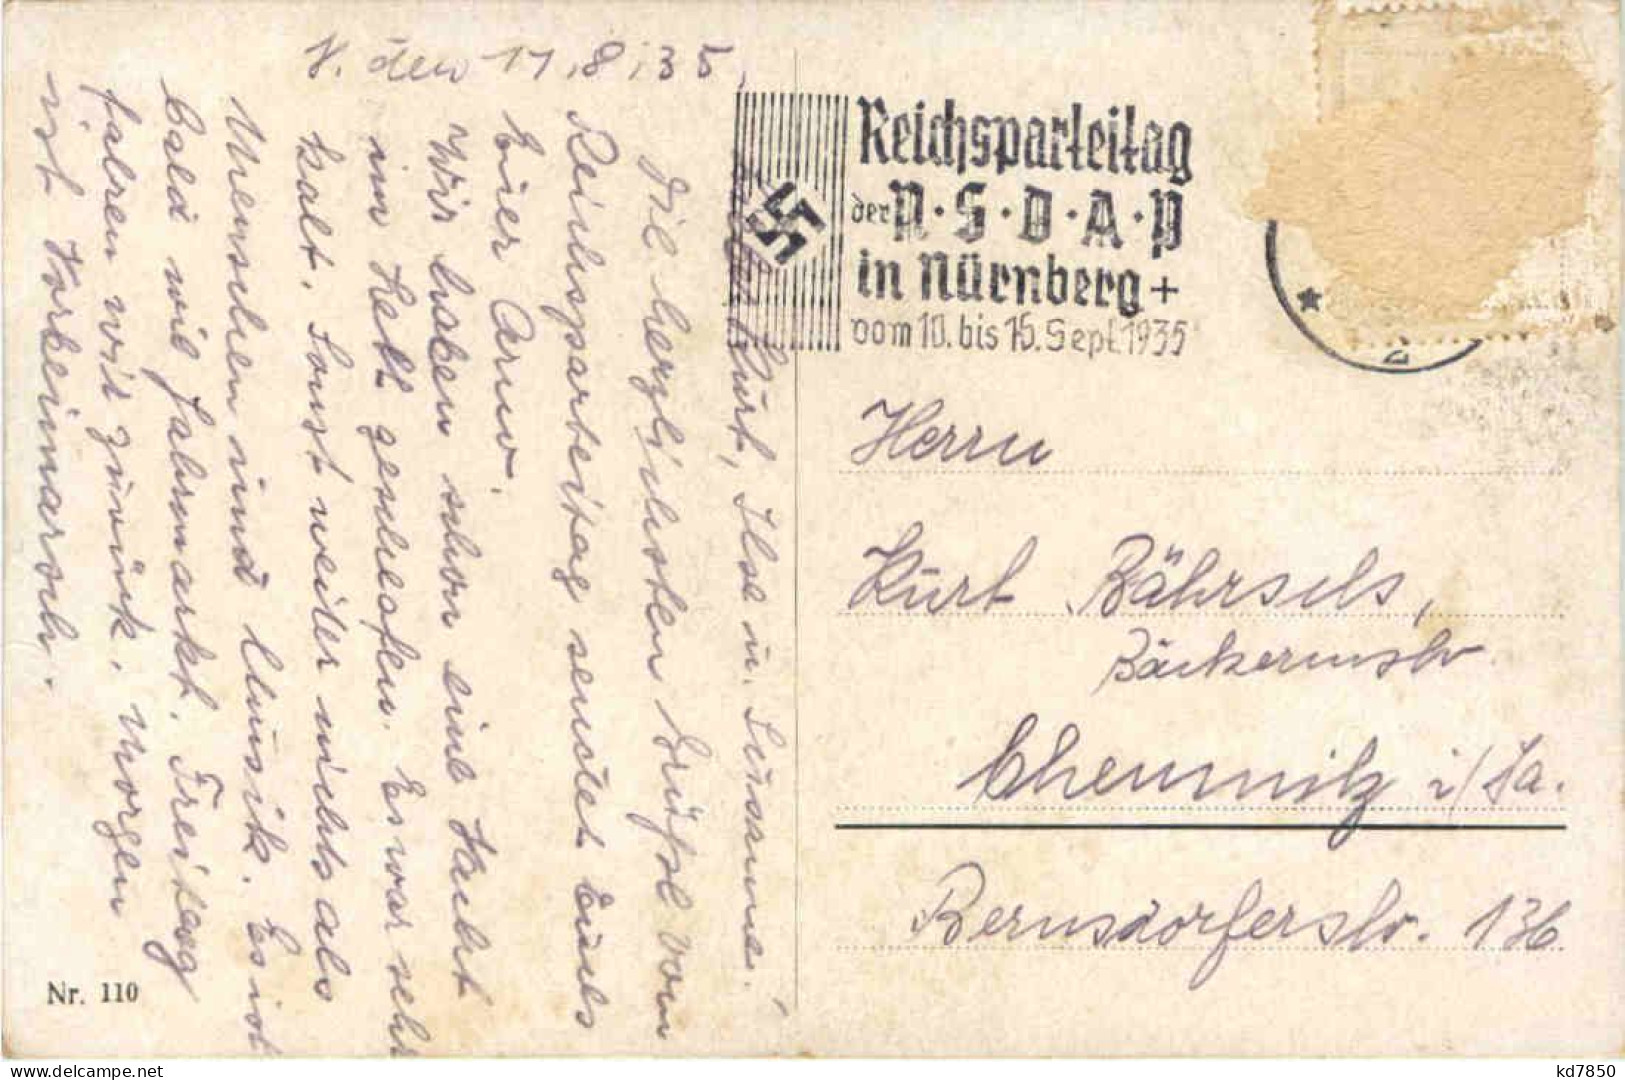 N. den 11.8.35.
Lieber Kurt, Ilse u. Sussanne!
Die herzlichsten Grüße vom
Reichsparteitag sendet Euch
Euer Arno.
Wir haben schon eine Nacht
im Zelt geschlafen. Es war sehr
kalt. Sonst weiter nichts als
Menschen und Musik. Es ist
bald wie Jahrmarkt. Freitag
fahren wir zurück. Morgen
ist Vorbeimarsch.
Nr. 110
Reichsparteitag
der N·S·D·A·P
in Nürnberg +
vom 10. bis 16. Sept. 1935
2
Herrn
Kurt Bährsch,
Bäckermstr.
Chemnitz i/Sa.
Bernsdorferstr. 136
kd7850